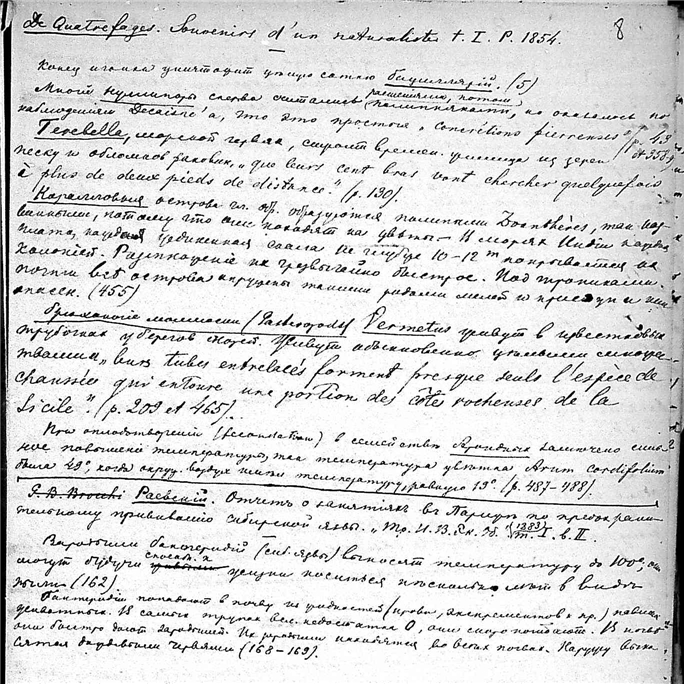 De Quatrefages. Souvenirs d'un naturaliste t. I. P. 1854. 8
Конец иголки уничтожит целую сотню бацилларій. (5)
Многія нуллипоры сперва считались растеніями, потом
полипняками, но оказалось по
наблюденіям Decaisne'a, что это простыя "concrétions pierreuses"
Terebella, морской червяк, строит времен. жилища из зерен
песку и обломков раковин, "que leurs cent bras vont chercher quelquefois
à plus de deux pieds de distance." (p. 130).
Коралловые острова гл. обр. образуются полипами Zoanthères, так наз-
ванными, потому что они походят на цветы. В морях Индіи каждая
скала не глубже 10-12 m покрывается их
колоніей. Размноженіе их чрезвычайно быстрое. Под тропиками
почти все острова окружены такими рядами мелей и
опасен. (455)
Брюхоногіе моллюски (Gasteropodes) Vermetus живут в известковых
трубочках у берегов морей. Живут обыкновенно
"leurs tubes entrelacés forment presque seuls l'espèce de
chaussée qui entoure une portion des côtes rocheuses de la
Sicile." (p. 209 et 465).
При оплодотвореніи (fécondation) в семействе Ароидных замечено силь-
ное повышеніе температуры, так температура цветка Arum cordifolium
была 49°, когда окруж. воздух имел температуру, равную 19°. (p. 487-488).
G. B. Brocchi Раевскій. Отчет о занятіях в Париже по предохрани-
тельному прививанію сибирской язвы. "Тр. И. В. Эк. Об." (1883) т. I. в. II.
Зародыши бактеридій (сиб. язвы) выносят температуру до 100°, они
могут будучи способн. к жизни носиться несколько лет в виде
пыли (162)
Бактеридіи попадают в почву из жидкостей (крови, экскрементов и пр.) павших
животных. В самых трупах вследс. недостатка O, они скоро погибают. В почве
они быстро дают зародышей. Их зародыши находятся во всех почвах. Наружу выно-
сятся дождевыми червями (168-169).